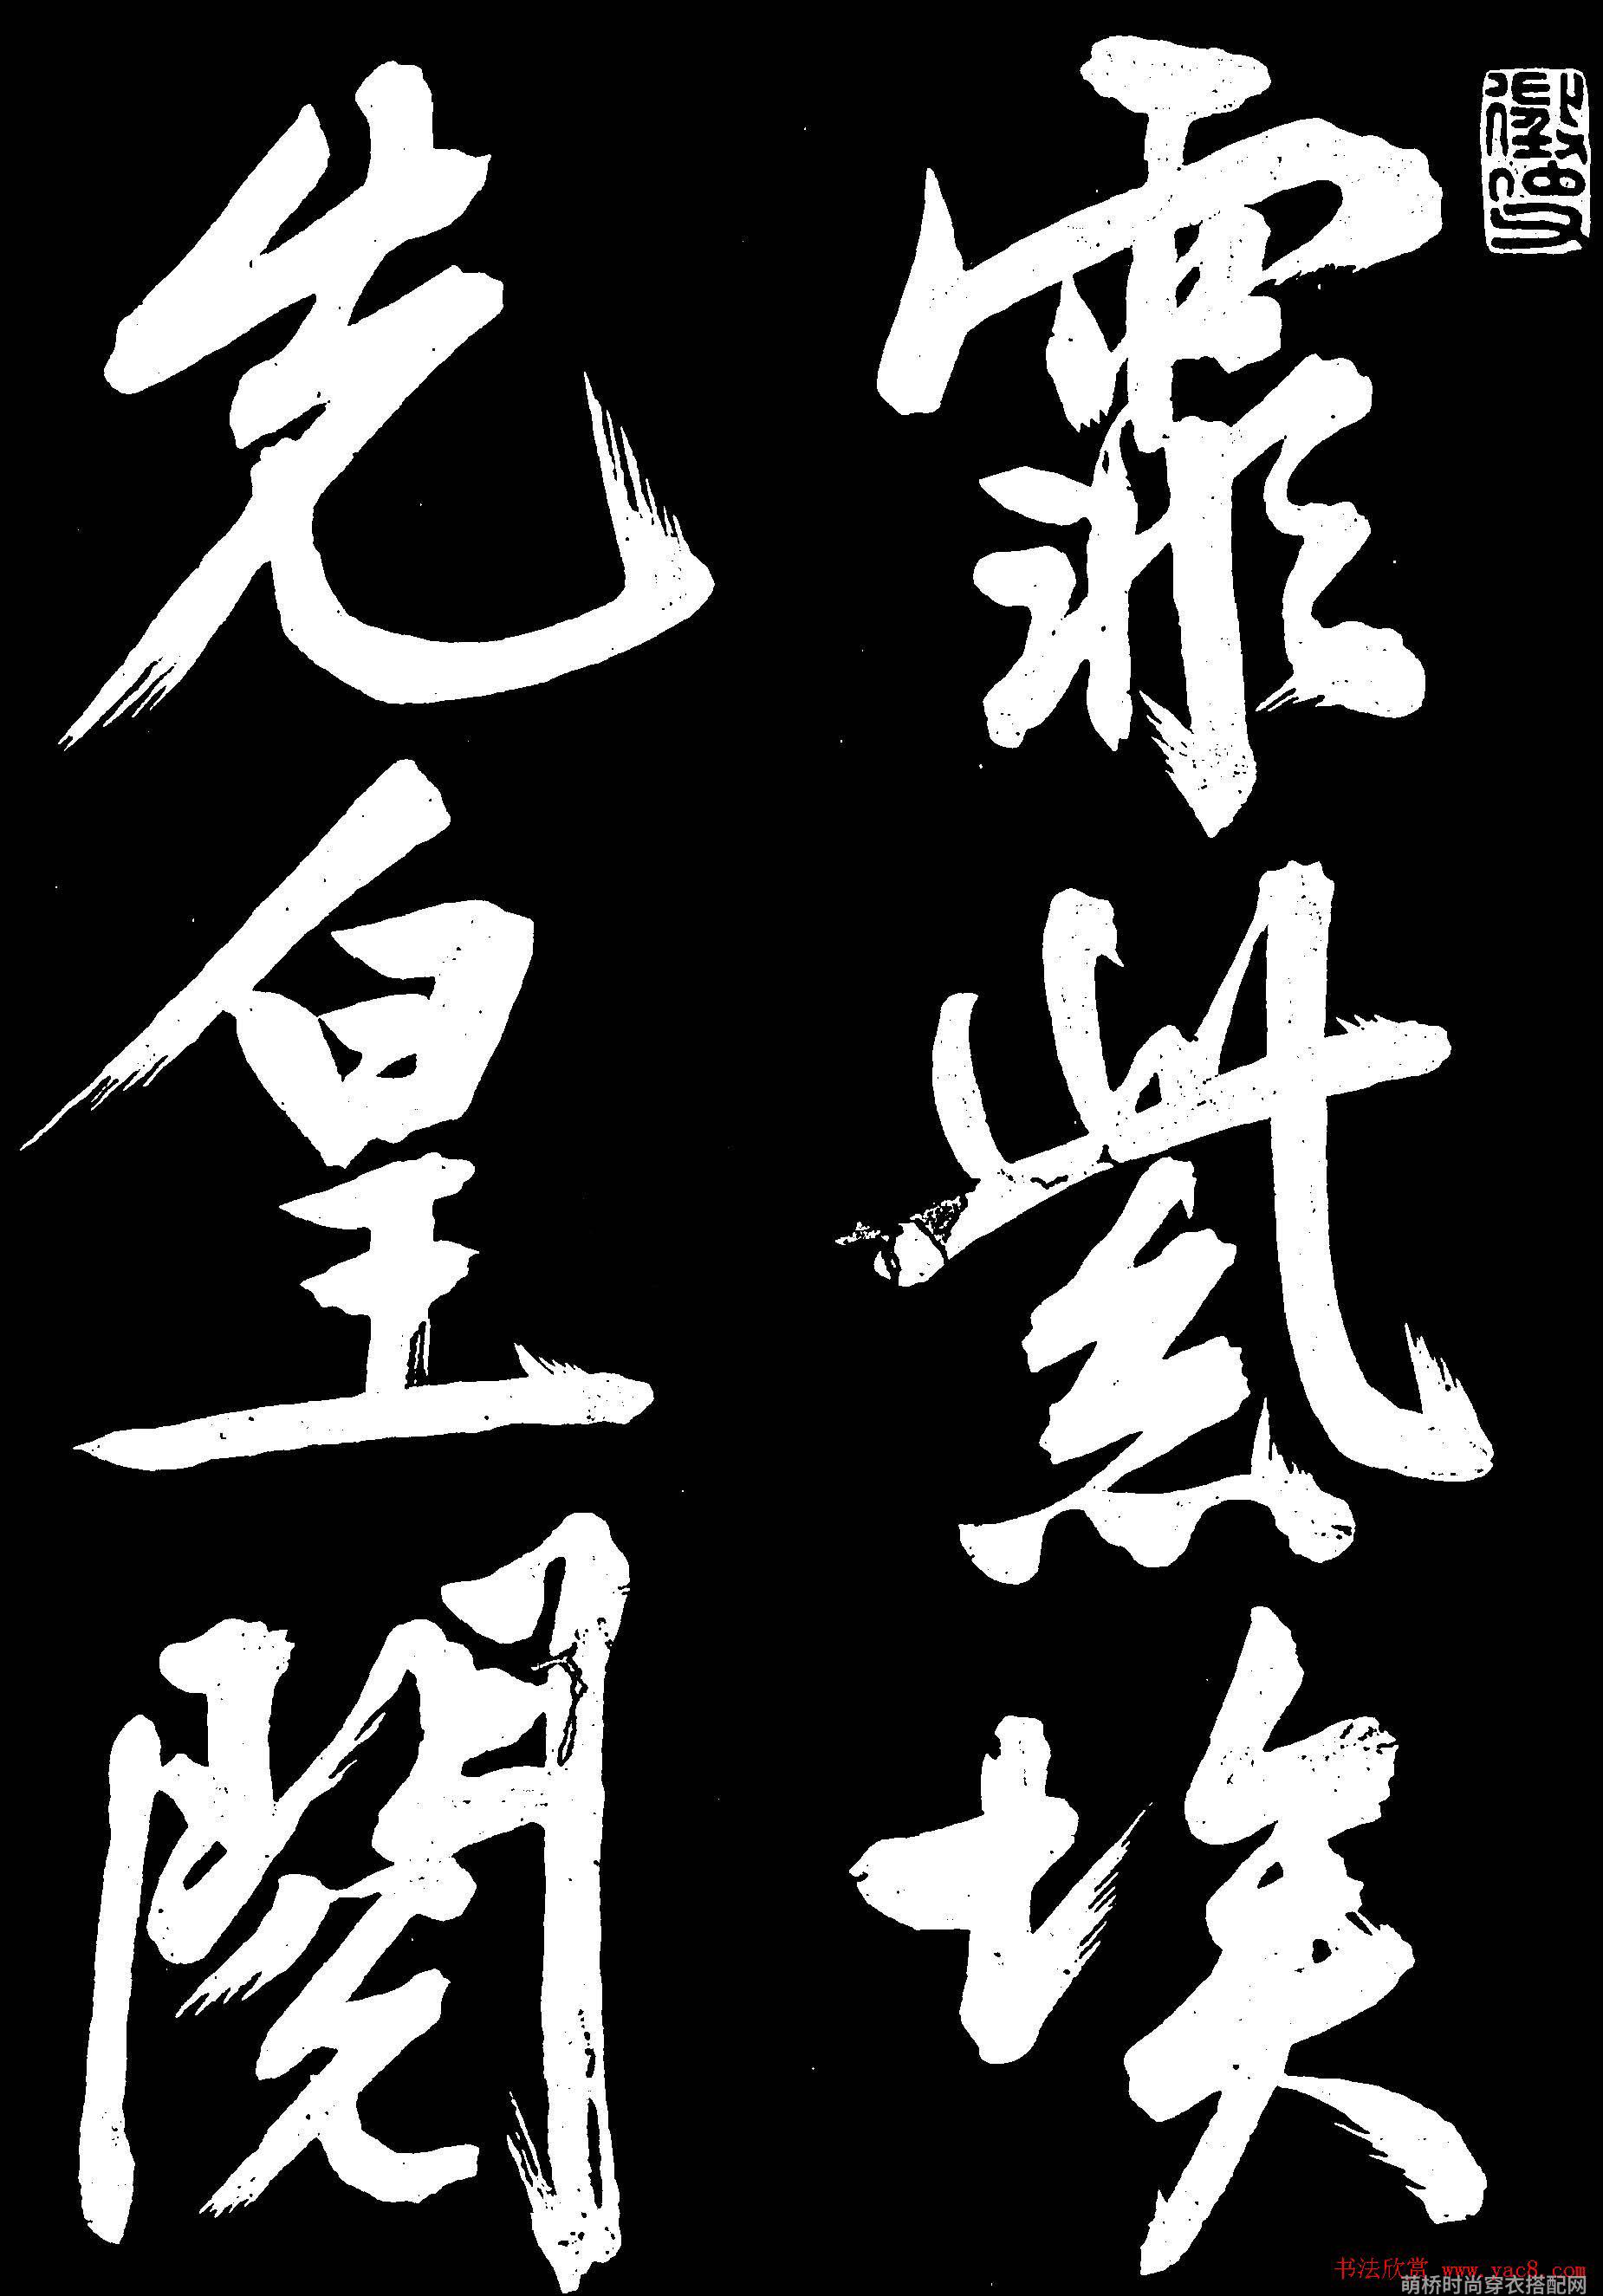 霏紫埃
先皇閱
书法欣赏 www.yac8.com
萌桥时尚穿衣搭配网